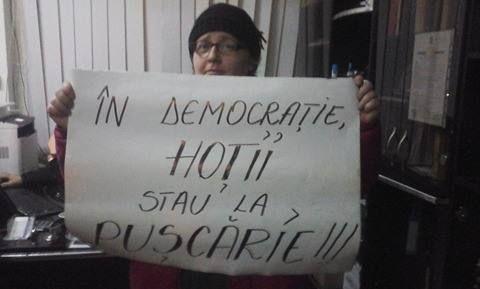 ÎN DEMOCRAȚIE,
HOȚII
STAU LA
PUȘCĂRIE!!!